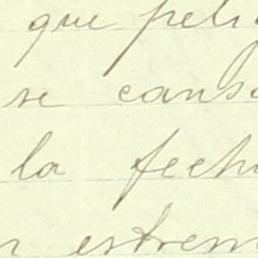 que peli
se cansa
la fech
n estrem